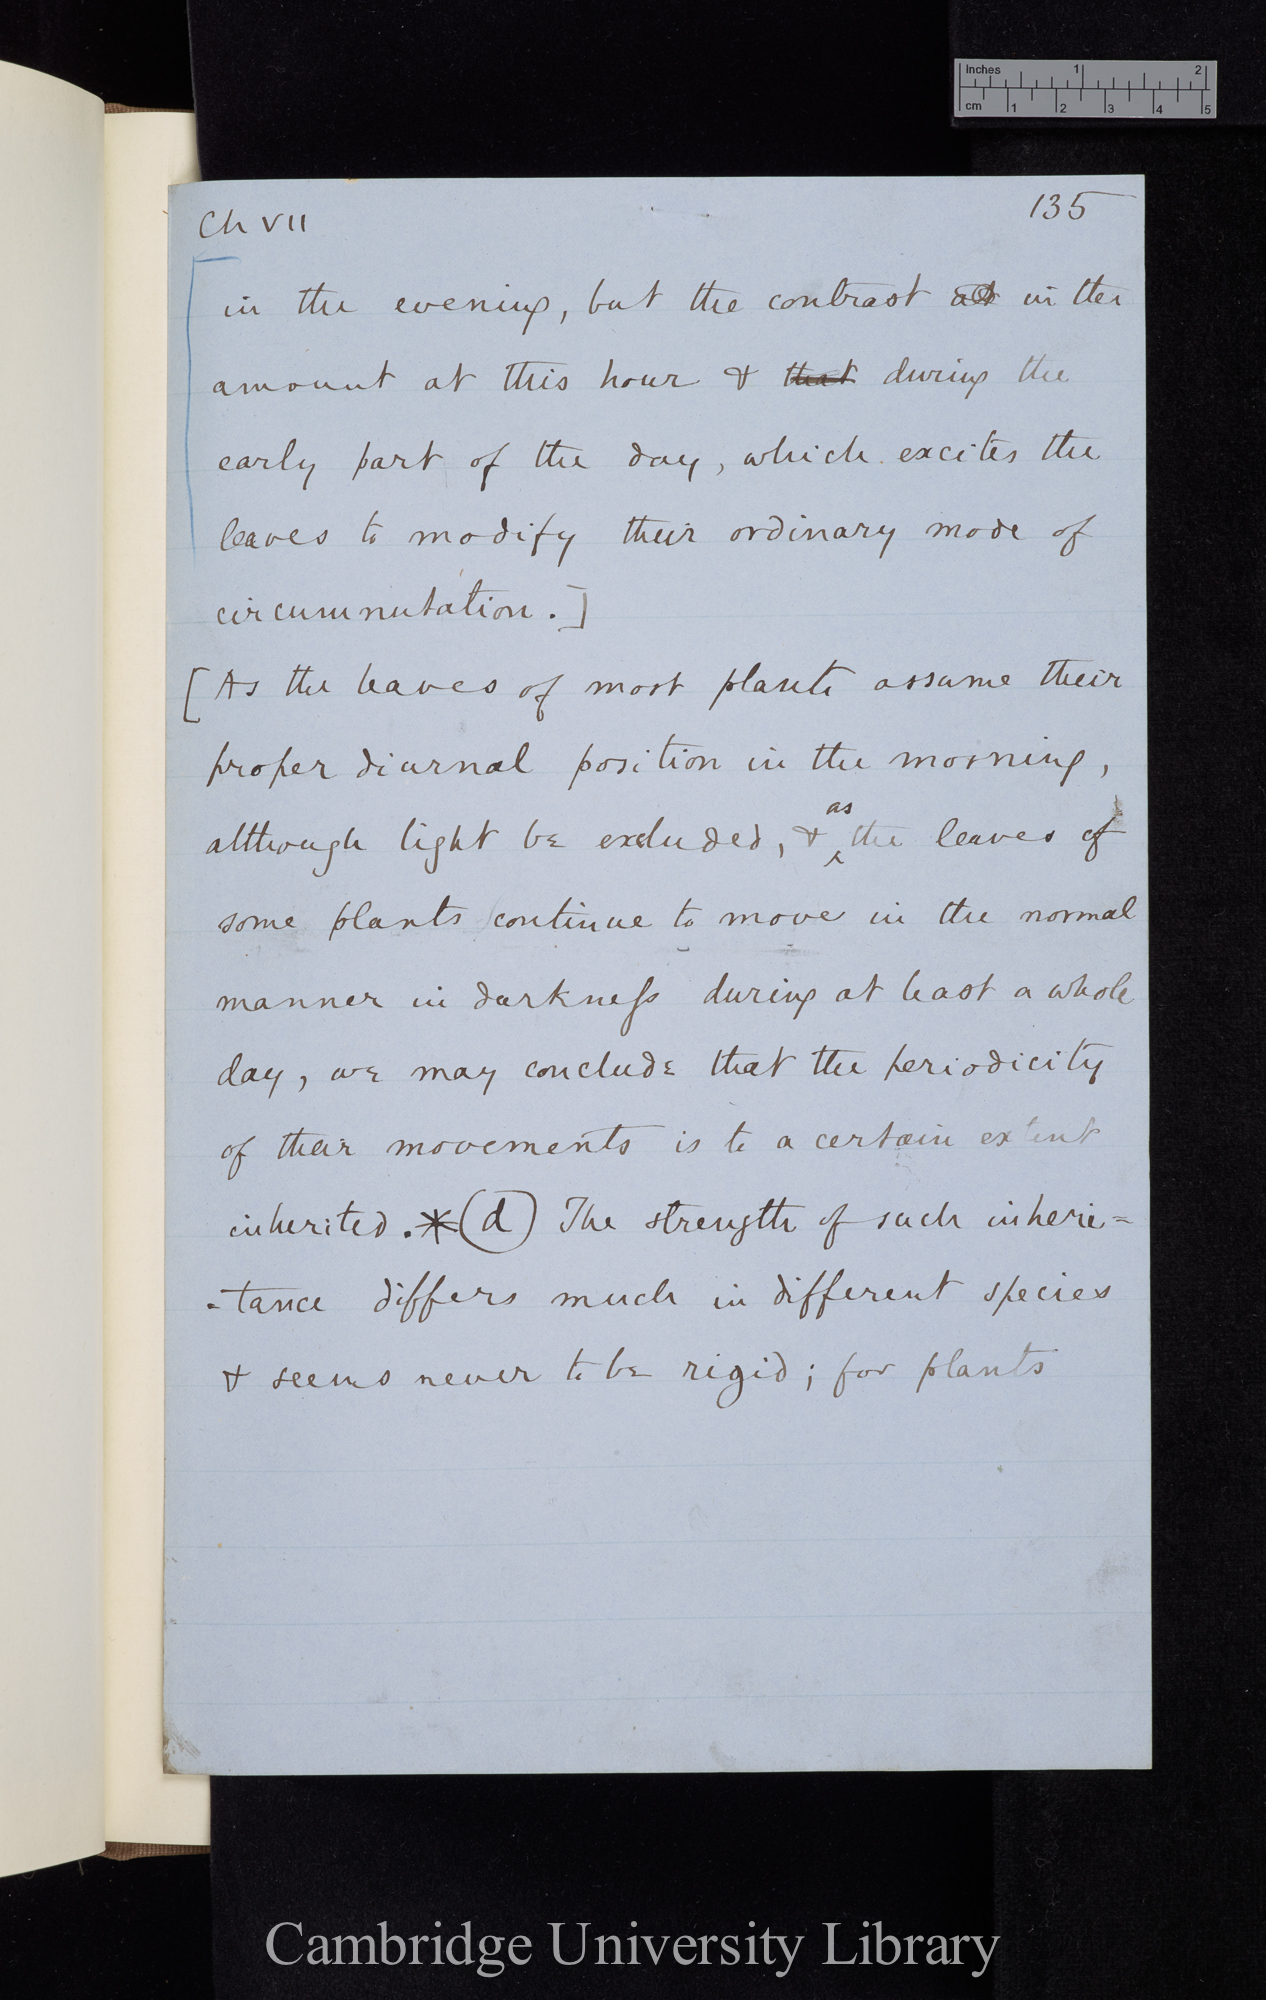 Inches 1 2
cm 1 2 3 4 5
Ch VII 135
in the evening, but the contrast in the
amount at this hour & that during the
early part of the day, which excites the
leaves to modify their ordinary mode of
circumnutation.]
[As the leaves of most plants assume their
proper diurnal position in the morning,
as
although light be excluded, & the leaves of
some plants continue to move in the normal
manner in darkness during at least a whole
day, we may conclude that the periodicity
of their movements is to a certain extent
inherited.*(d) The strength of such inheri=
-tance differs much in different species
& seems never to be rigid; for plants
Cambridge University Library